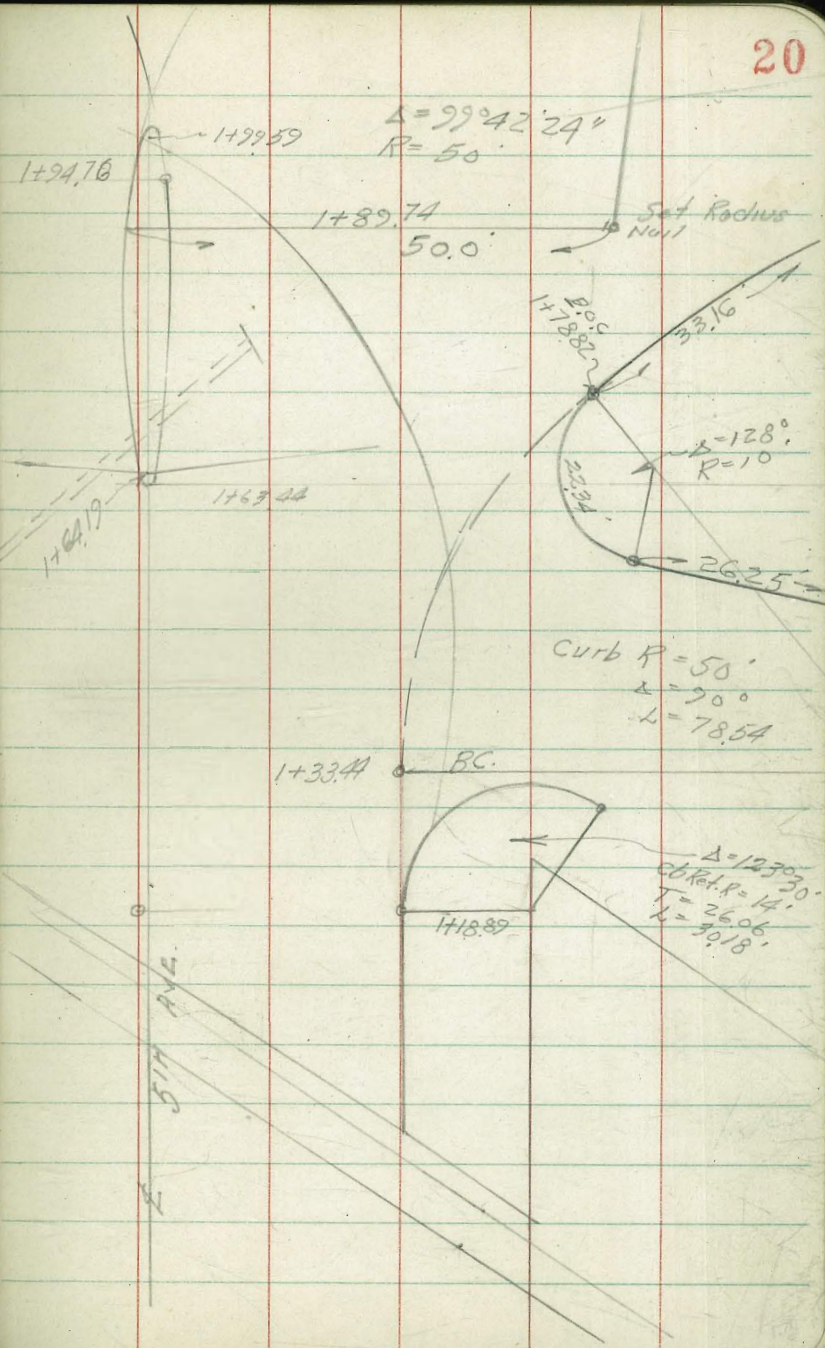 20
Δ = 99°42'24"
R = 50'
1+99.59
1+94.76
1+89.74
50.0'
Set Radius
Nail
P.O.C.
1+78.82
33.16'
Δ=128°
R=10'
22.34'
26.25'
1+63.44
1+64.19
Curb R = 50'
Δ = 90°
L = 78.54
1+33.44
B.C.
Δ=123°30'
Cb Ret. R = 14'
T = 26.06'
L = 30.18'
1+18.89
℄ 5TH AVE.